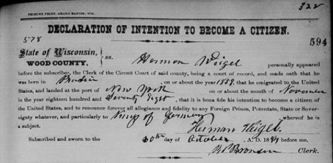 322
DECLARATION OF INTENTION TO BECOME A CITIZEN.
594
578
State of Wisconsin,
WOOD COUNTY. ss. Herman Weigel personally appeared
before the subscriber, the Clerk of the Circuit Court of said county, being a court of record, and made oath that he
was born in on or about the year 18 ; that he emigrated to the United
States, and landed at the port of New York on or about the month of November
in the year eighteen hundred and Seventy Eight ; that it is bona fide his intention to become a citizen of
the United States, and to renounce forever all allegiance and fidelity to any Foreign Prince, Potentate, State or Sover-
eignty whatever, and particularly to King of Germany whereof he is a
subject. Herman Weigel.
Subscribed and sworn to this 30th day of October A. D. 18
Clerk.